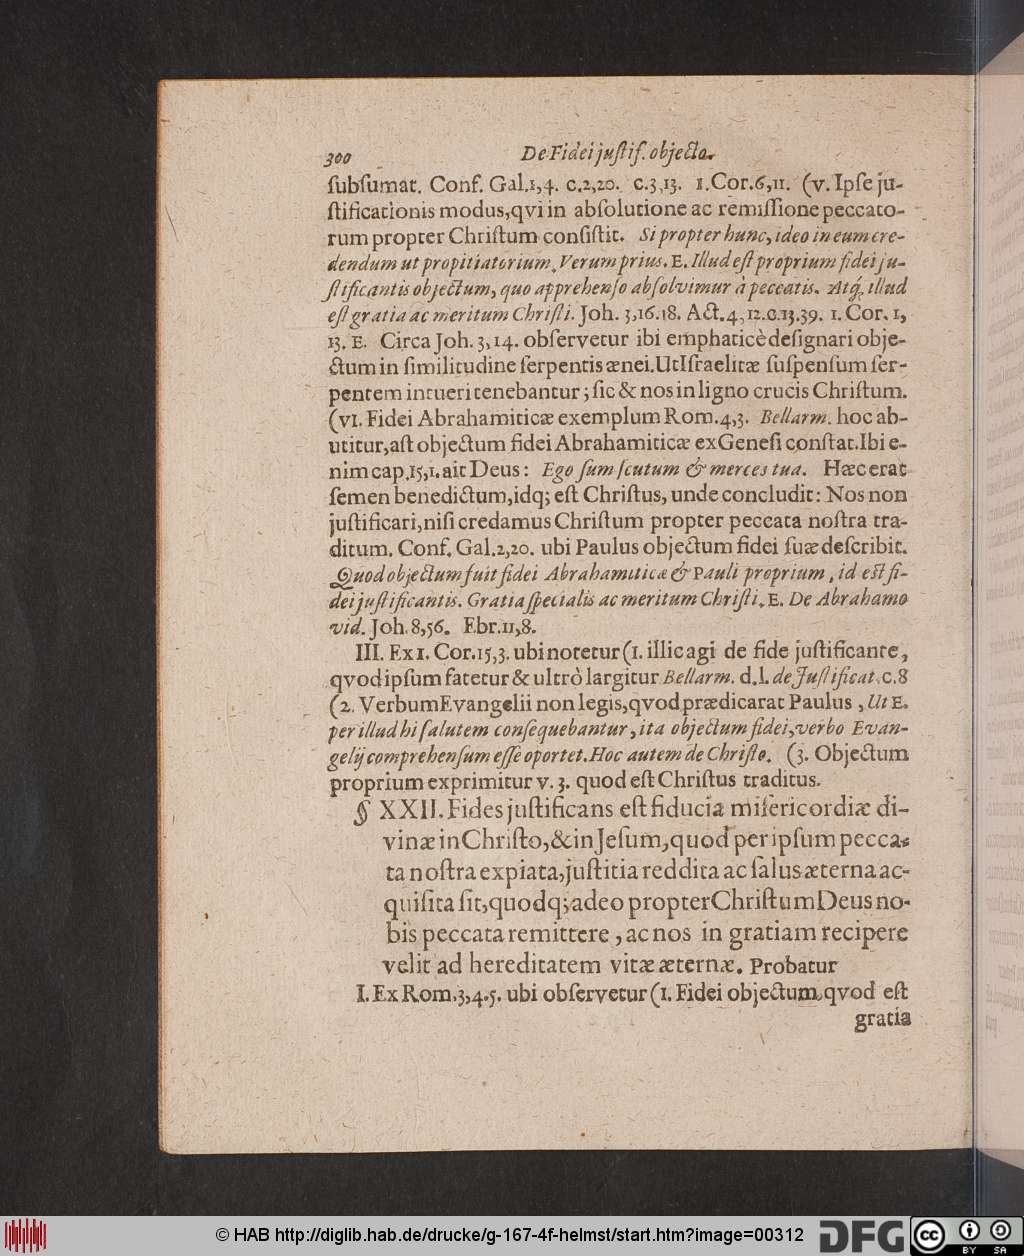 300 De Fidei juſtif. objecto.
ſubſumat. Conf. Gal.1,4. c.2,20. c.3,13. 1.Cor.6,11. (v. Ipſe ju-
ſtificationis modus,qvi in abſolutione ac remiſſione peccato-
rum propter Chriſtum conſiſtit. Si propter hunc, ideo in eum cre-
dendum ut propitiatorium, Verum prius. E. Illud eſt proprium fidei ju-
ſtificantis objectum, quo apprehenſo abſolvimur à peccatis. Atq́; illud
eſt gratia ac meritum Chriſti. Joh. 3,16.18. Act.4,12.c.13.39. 1. Cor. 1,
13. E. Circa Joh. 3,14. obſervetur ibi emphaticè deſignari obje-
ctum in ſimilitudine ſerpentis ænei. Ut Iſraelitæ ſuſpenſum ſer-
pentem intueri tenebantur; ſic & nos in ligno crucis Chriſtum.
(VI. Fidei Abrahamiticæ exemplum Rom.4,3. Bellarm. hoc ab-
utitur,aſt objectum fidei Abrahamiticæ ex Geneſi conſtat. Ibi e-
nim cap.15,1. ait Deus: Ego ſum ſcutum & merces tua. Hæc erat
ſemen benedictum,idq; eſt Chriſtus, unde concludit: Nos non
juſtificari,niſi credamus Chriſtum propter peccata noſtra tra-
ditum. Conf. Gal.2,20. ubi Paulus objectum fidei ſuæ deſcribit.
Quod objectum fuit fidei Abrahamiticæ & Pauli proprium, id eſt fi-
dei juſtificantis. Gratia ſpecialis ac meritum Chriſti. E. De Abrahamo
vid. Joh. 8,56. Ebr.11,8.
III. Ex 1. Cor.15,3. ubi notetur (1. illic agi de fide juſtificante,
qvod ipſum fatetur & ultrò largitur Bellarm. d.l. de Juſtificat. c.8
(2. Verbum Evangelii non legis,qvod prædicarat Paulus, Ut E.
per illud hi ſalutem conſequebantur, ita objectum fidei, verbo Evan-
gelij comprehenſum eſſe oportet. Hoc autem de Chriſto. (3. Objectum
proprium exprimitur v. 3. quod eſt Chriſtus traditus.
§ XXII. Fides juſtificans eſt fiducia miſericordiæ di-
vinæ in Chriſto,& in Jeſum,quod per ipſum pecca-
ta noſtra expiata,juſtitia reddita ac ſalus æterna ac-
quiſita ſit,quodq; adeo propter Chriſtum Deus no-
bis peccata remittere, ac nos in gratiam recipere
velit ad hereditatem vitæ æternæ. Probatur
I. Ex Rom.3,4.5. ubi obſervetur (1. Fidei objectum,qvod eſt
gratia
© HAB http://diglib.hab.de/drucke/g-167-4f-helmst/start.htm?image=00312 DFG cc BY SA